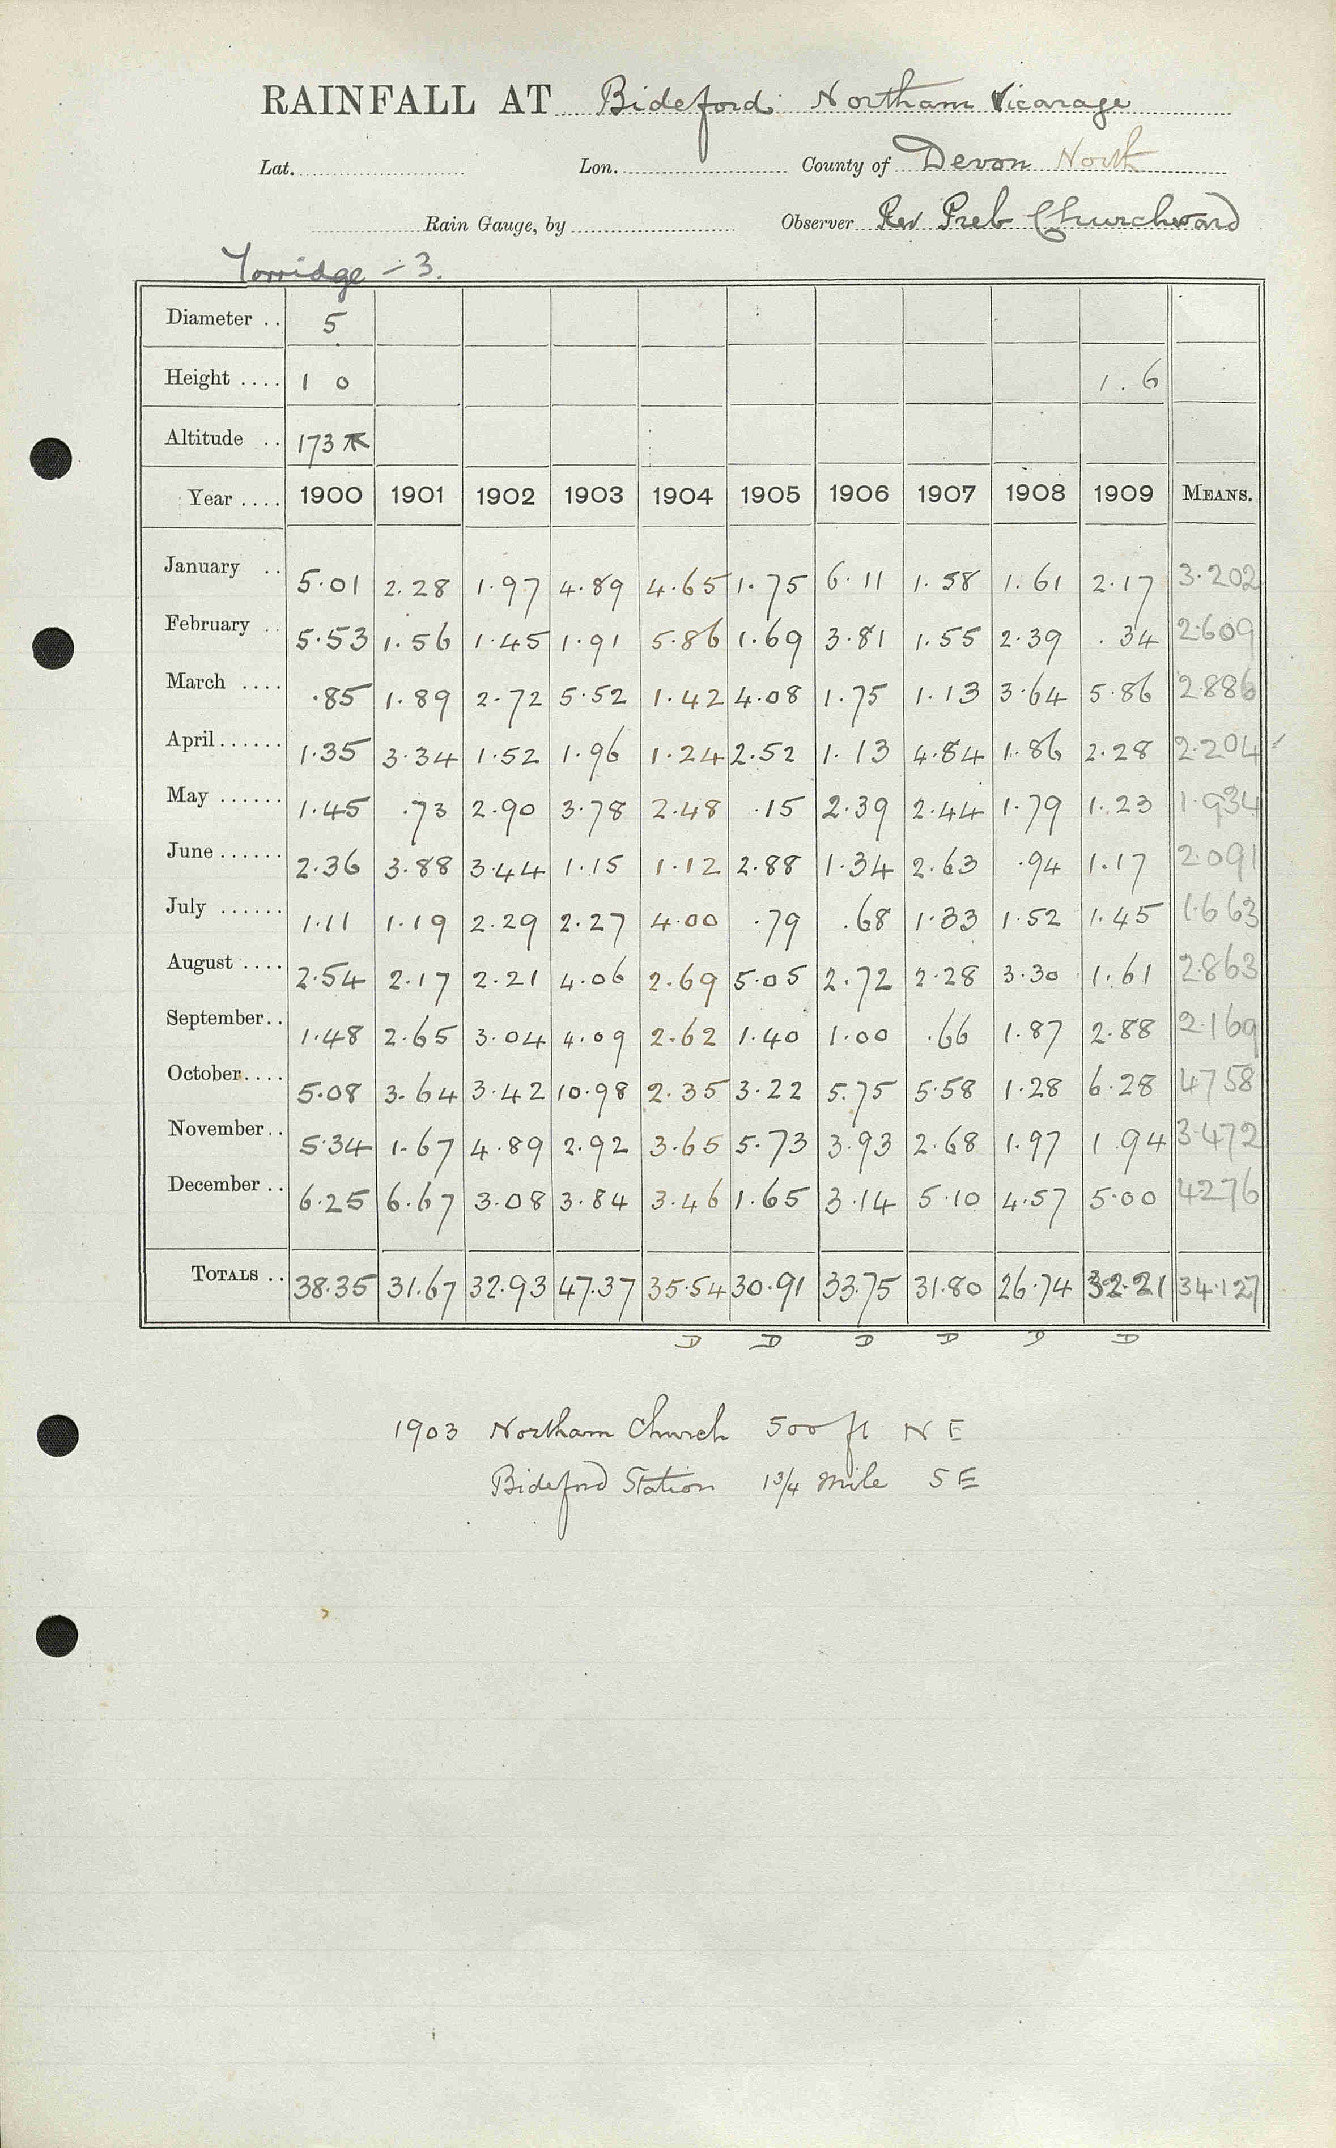 RAINFALL AT Bideford Northam Vicarage
Lat. Lon. County of Devon North
Rain Gauge, by Observer Rev Preb Churchward
Torridge - 3.
Diameter .. 5
Height .... 1 0 1.6
Altitude .. 173
Year .... 1900 1901 1902 1903 1904 1905 1906 1907 1908 1909 MEANS.
January .. 5.01 2.28 1.97 4.89 4.65 1.75 6.11 1.58 1.61 2.17 3.202
February .. 5.53 1.56 1.45 1.91 5.86 1.69 3.81 1.55 2.39 .34 2.609
March .... .85 1.89 2.72 5.52 1.42 4.08 1.75 1.13 3.64 5.86 2.886
April...... 1.35 3.34 1.52 1.96 1.24 2.52 1.13 4.84 1.86 2.28 2.204
May ...... 1.45 .73 2.90 3.78 2.48 .15 2.39 2.44 1.79 1.23 1.934
June ...... 2.36 3.88 3.44 1.15 1.12 2.88 1.34 2.63 .94 1.17 2.091
July ...... 1.11 1.19 2.29 2.27 4.00 .79 .68 1.33 1.52 1.45 1.663
August .... 2.54 2.17 2.21 4.06 2.69 5.05 2.72 2.28 3.30 1.61 2.863
September.. 1.48 2.65 3.04 4.09 2.62 1.40 1.00 .66 1.87 2.88 2.169
October.... 5.08 3.64 3.42 10.98 2.35 3.22 5.75 5.58 1.28 6.28 4758
November.. 5.34 1.67 4.89 2.92 3.65 5.73 3.93 2.68 1.97 1.94 3.472
December .. 6.25 6.67 3.08 3.84 3.46 1.65 3.14 5.10 4.57 5.00 4276
TOTALS .. 38.35 31.67 32.93 47.37 35.54 30.91 33.75 31.80 26.74 32.21 34.127
D D D D D D
1903 Northam Church 500 ft N E
Bideford Station 1 3/4 Mile S E